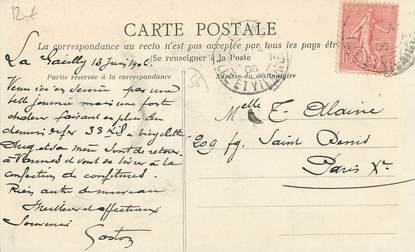 12 €
CARTE POSTALE
La correspondance au recto n'est pas acceptée par tous les pays étr
(Se renseigner à la Poste
La Gacilly 13 Juin 1906.
Partie réservée à la correspondance
Adresse du destinataire
Venu ici en service par une
belle journée mais une forte
chaleur faisant en plus du
demi défer 33 Kil à bicyclette
sont de retour
à Vannes et vont se livrer à la
confection de confitures.
Rien autre de nouveau
Meilleurs et affectueux
Souvenirs
Gaston
Melle E. Alaine
209 fg. Saint Denis
Paris Xe
ILLE ET VILAINE
06